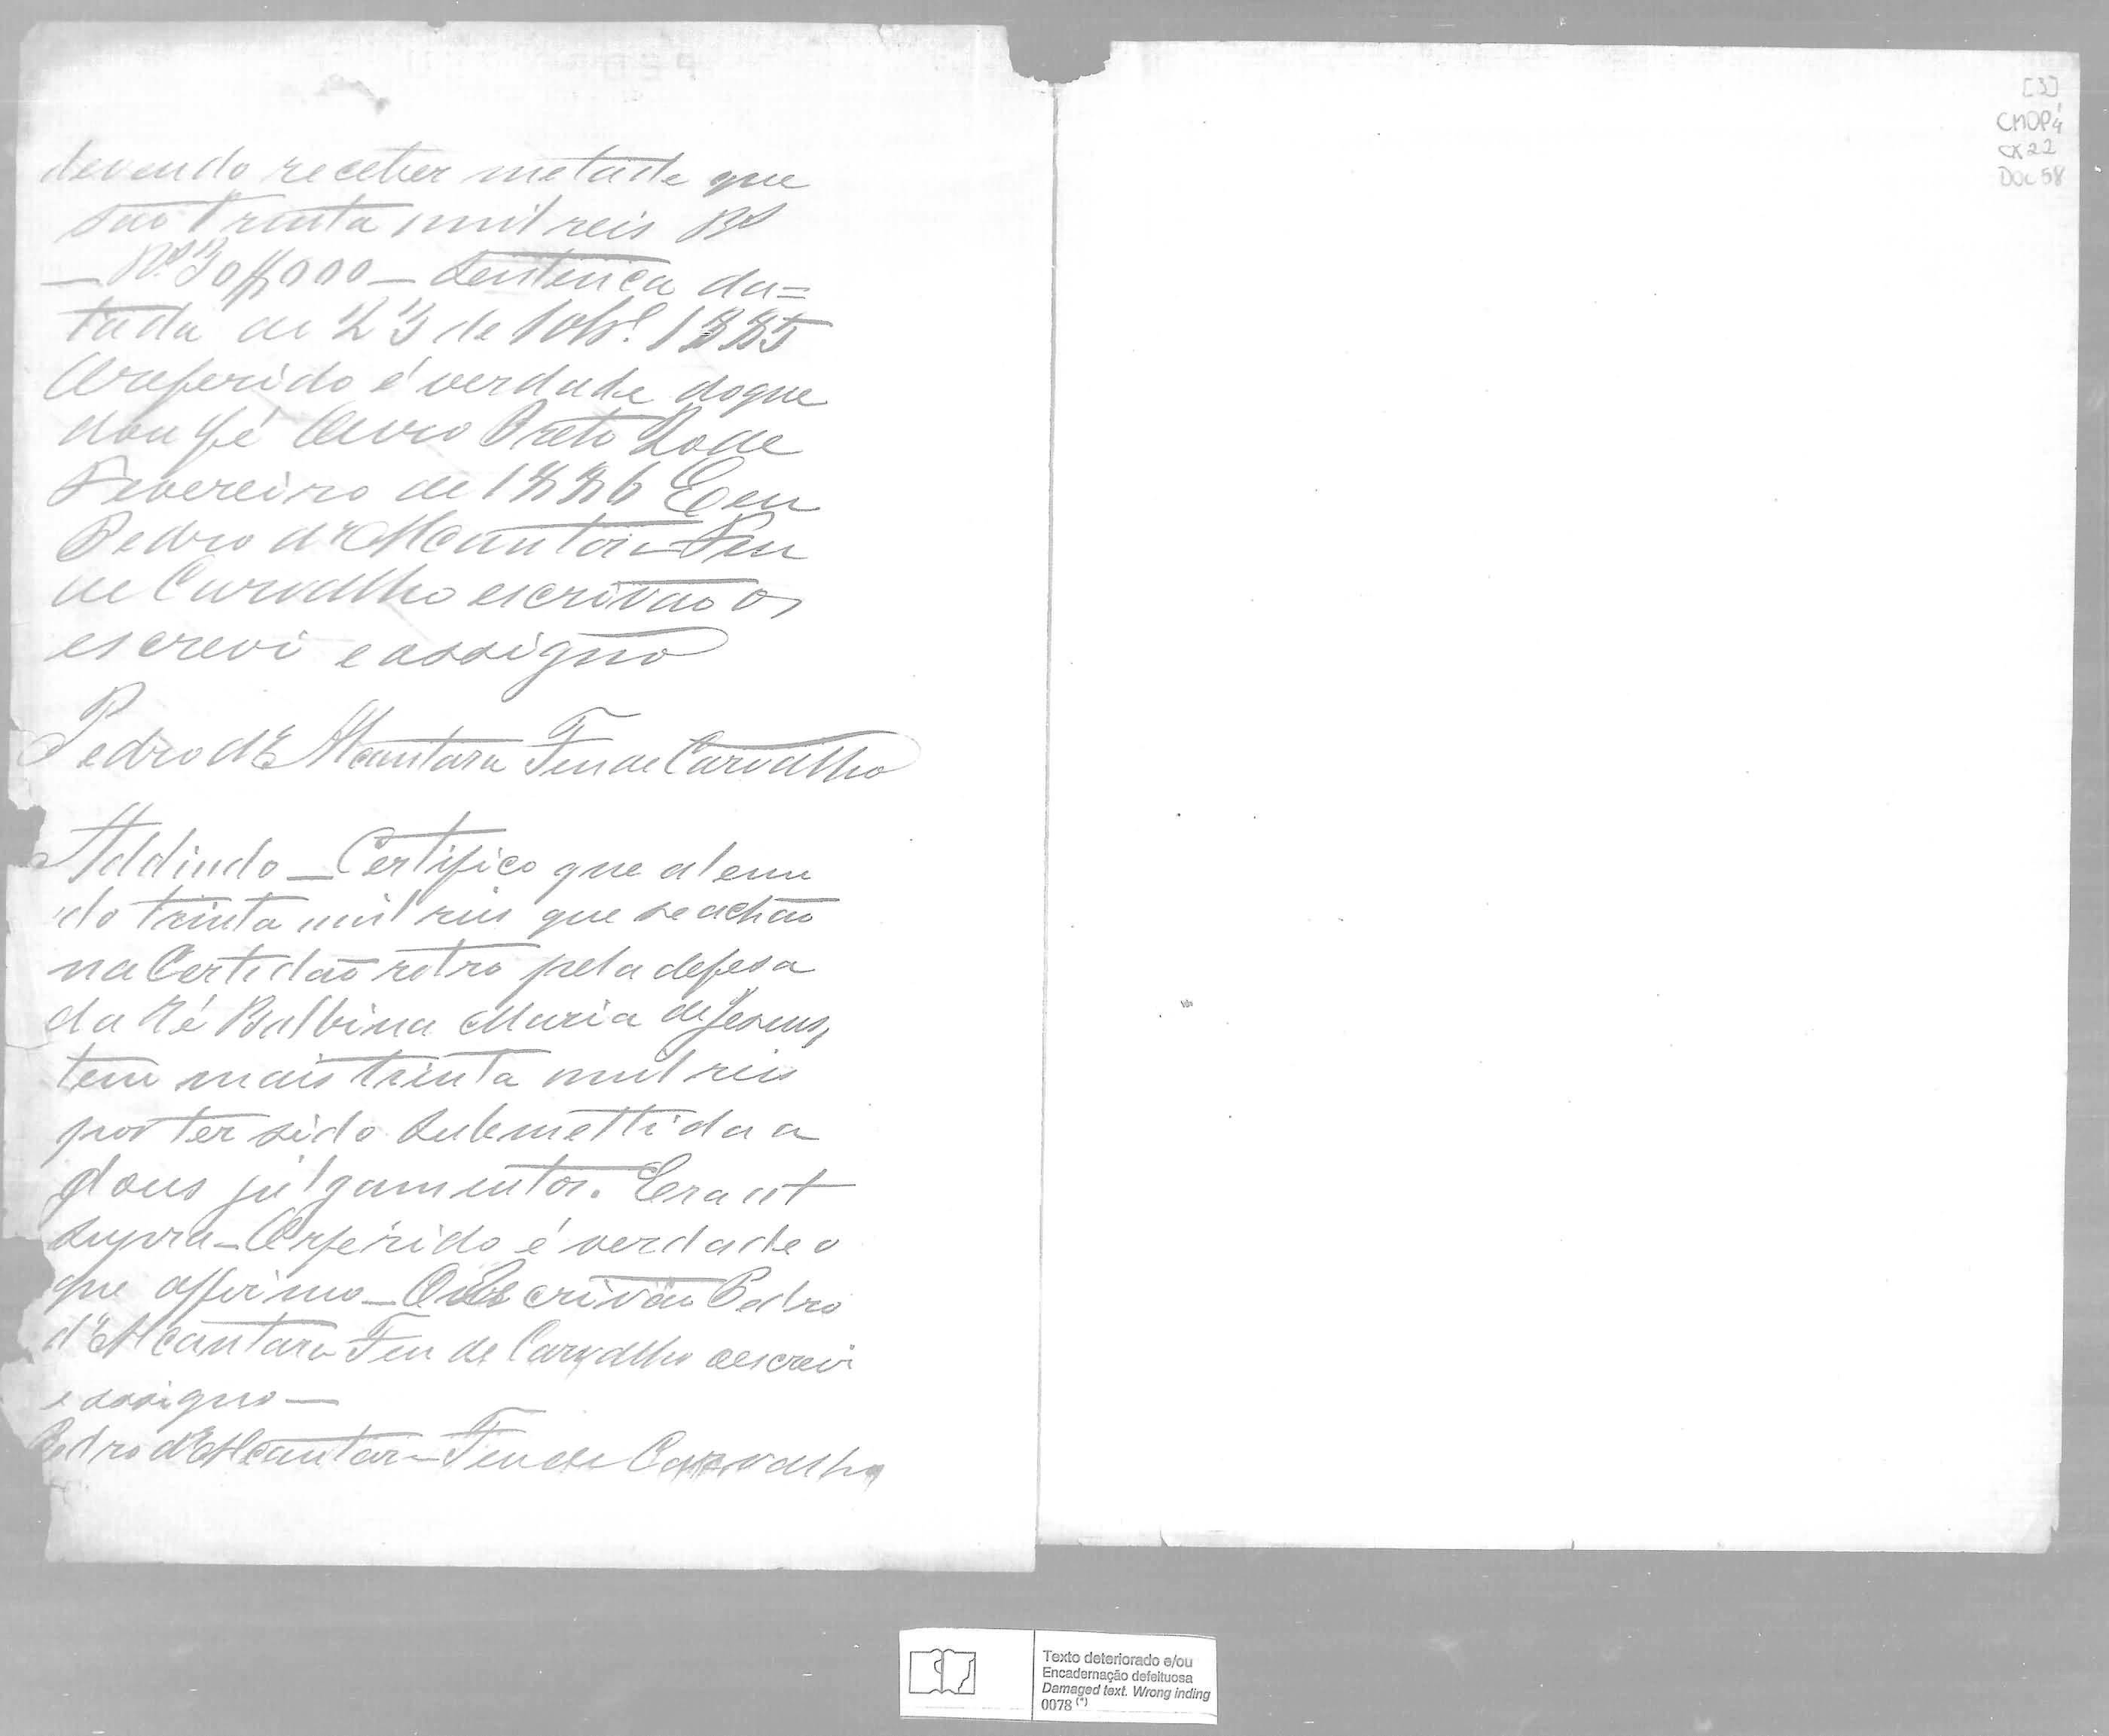 devendo receber metade que
são trinta mil reis Rs
— Rs 30$000 — Sentença da=
tada de 23 de 10bro 1885
O referido é verdade do que
dou fé Ouro Preto 20 de
Fevereiro de 1886 E eu
Pedro d'Alcantara Feu
de Carvalho escrivão o
escrevi e assigno
Pedro d'Alcantara Feu de Carvalho
Addindo — Certifico que alem
do trinta mil reis que se achão
na Certidão retro pela defesa
da Ré Balbina Maria de Jesus,
tem mais trinta mil reis
por ter sido submettida a
dous julgamentos. Era ut
supra — O referido é verdade o
que affirmo — O Escrivão Pedro
d'Alcantara Feu de Carvalho o escrevi
e assigno —
Pedro d'Alcantara Feu de Carvalho
[3]
CMOP
CX 22
DOC 58
Texto deteriorado e/ou
Encadernação defeituosa
Damaged text. Wrong inding
0078 (*)